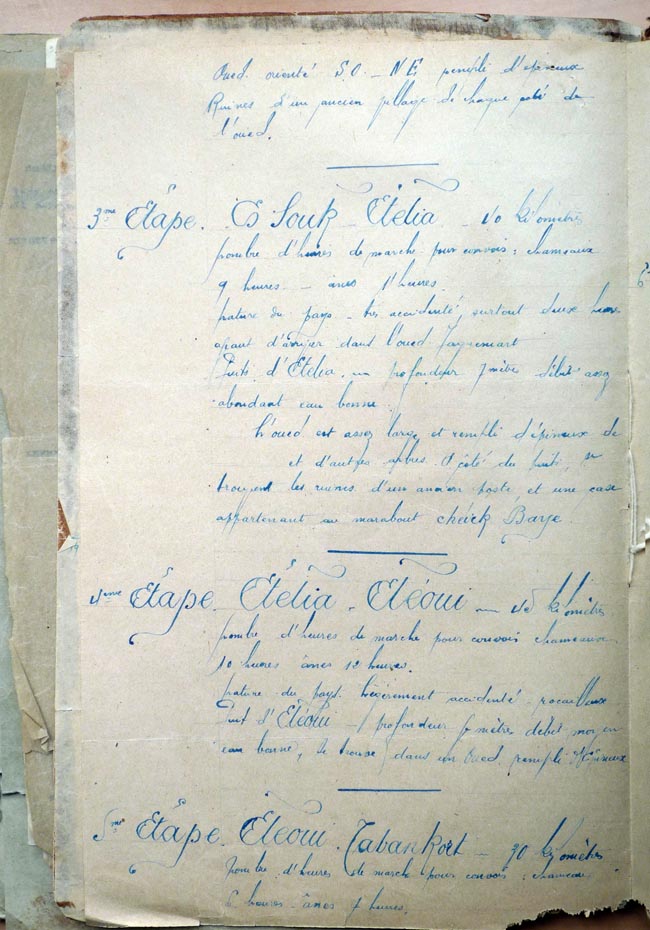 Oued orienté S.O - N E rempli d'épineux
Ruines d'un ancien village de chaque côté de
l'oued.
3me Étape. Es Souk - Étélia - 40 kilomètres
Nombre d'heures de marche pour convois : chameaux
9 heures - ânes 11 heures.
Nature du pays - très accidenté, surtout deux heures
avant d'arriver dans l'oued
Puits d'Étélia. profondeur 7 mètres débit assez
abondant eau bonne.
L'oued est assez large et rempli d'épineux de
et d'autres arbres. A côté du puits, se
trouvent les ruines d'un ancien poste et une case
appartenant au marabout cheick Baye.
4ème Étape. Étélia - Étéoui - 45 kilomètres
Nombre d'heures de marche pour convois chameaux
10 heures ânes 12 heures.
Nature du pays. Légèrement accidenté - rocailleux
Puit d'Étéoui - profondeur 6 mètres débit moyen
eau bonne, se trouve dans un Oued rempli d'épineux
5me Étape. Étéoui - Tabankort - 30 kilomètres
Nombre d'heures de marche pour convois : chameaux
6 heures - ânes 7 heures.